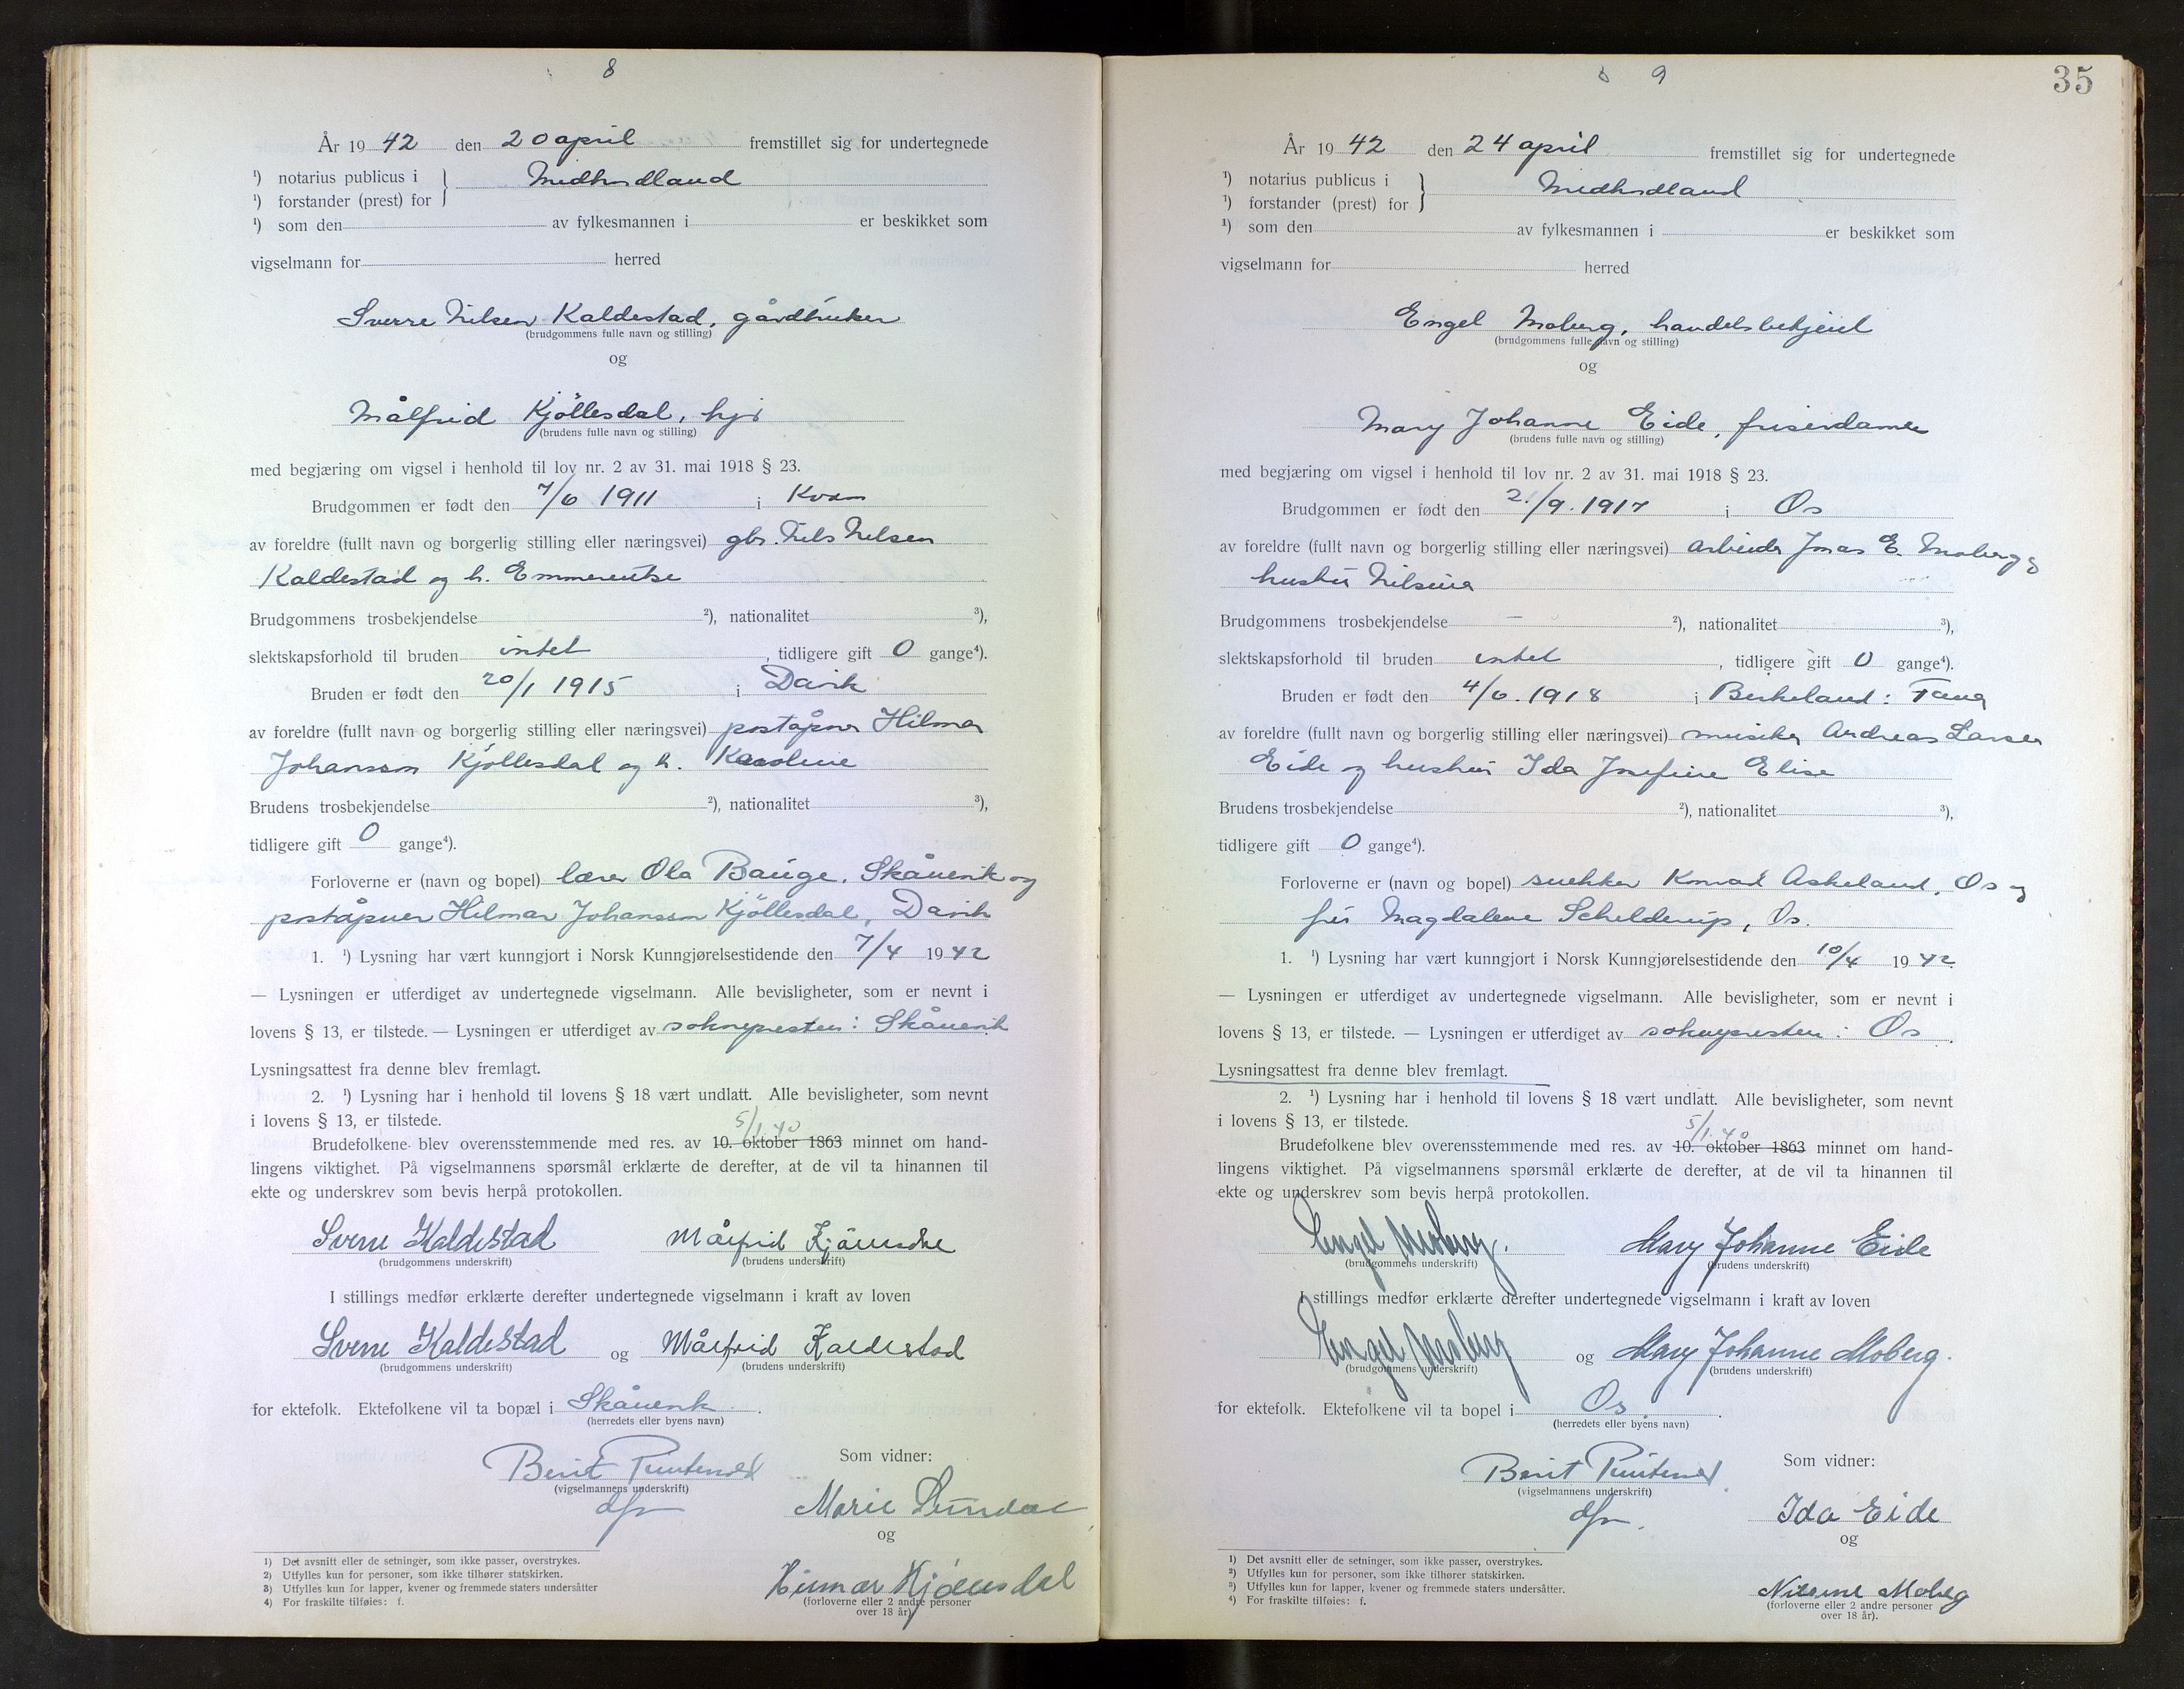 8
År 19 42 den 20 april fremstillet sig for undertegnede
¹) notarius publicus i } Midhordland
¹) forstander (prest) for
¹) som den av fylkesmannen i er beskikket som
vigselmann for herred
Sverre Nilsen Kaldestad, gårdbruker
(brudgommens fulle navn og stilling)
og
Målfrid Kjöllesdal, hj
(brudens fulle navn og stilling)
med begjæring om vigsel i henhold til lov nr. 2 av 31. mai 1918 § 23.
Brudgommen er født den 7/6 1911 i Kvam
av foreldre (fullt navn og borgerlig stilling eller næringsvei) gbr. Nils Nilsen
Kaldestad og h. Emmerentse
Brudgommens trosbekjendelse ²), nationalitet ³),
slektskapsforhold til bruden intet, tidligere gift 0 gange⁴).
Bruden er født den 20/1 1915 i Davik
av foreldre (fullt navn og borgerlig stilling eller næringsvei) poståpner Hilmar
Johansson Kjöllesdal og h. Karoline
Brudens trosbekjendelse ²), nationalitet ³),
tidligere gift 0 gange⁴).
Forloverne er (navn og bopel) lærer Ola Bauge, Skånevik og
poståpner Hilmar Johansson Kjöllesdal, Davik
1. ¹) Lysning har vært kunngjort i Norsk Kunngjørelsestidende den 7/4 1942
— Lysningen er utferdiget av undertegnede vigselmann. Alle bevisligheter, som er nevnt i
lovens § 13, er tilstede. — Lysningen er utferdiget av soknepresten i Skånevik
Lysningsattest fra denne blev fremlagt.
2. ¹) Lysning har i henhold til lovens § 18 vært undlatt. Alle bevisligheter, som nevnt
i lovens § 13, er tilstede.
5/1.40
Brudefolkene blev overensstemmende med res. av 10. oktober 1863 minnet om hand-
lingens viktighet. På vigselmannens spørsmål erklærte de derefter, at de vil ta hinannen til
ekte og underskrev som bevis herpå protokollen.
Sverre Kaldestad Målfrid Kjöllesdal
(brudgommens underskrift) (brudens underskrift)
I stillings medfør erklærte derefter undertegnede vigselmann i kraft av loven
Sverre Kaldestad og Målfrid Kaldestad
(brudgommens underskrift) (brudens underskrift)
for ektefolk. Ektefolkene vil ta bopæl i Skånevik.
(herredets eller byens navn)
Som vidner:
Berit
(vigselmannens underskrift)
dfm
Marie Sundal
og
Hilmar Kjöllesdal
(forloverne eller 2 andre personer
over 18 år).
1) Det avsnitt eller de setninger, som ikke passer, overstrykes.
2) Utfylles kun for personer, som ikke tilhører statskirken.
3) Utfylles kun for lapper, kvener og fremmede staters undersåtter
4) For fraskilte tilføies: f.
9
35
År 19 42 den 24 april fremstillet sig for undertegnede
¹) notarius publicus i } Midhordland
¹) forstander (prest) for
¹) som den av fylkesmannen i er beskikket som
vigselmann for herred
Engel Moberg, handelsbetjent
(brudgommens fulle navn og stilling)
og
Mary Johanne Eide, friserdame
(brudens fulle navn og stilling)
med begjæring om vigsel i henhold til lov nr. 2 av 31. mai 1918 § 23.
Brudgommen er født den 21/9. 1917 i Os
av foreldre (fullt navn og borgerlig stilling eller næringsvei) arbeider Jonas E. Moberg og
hustru Nilsine
Brudgommens trosbekjendelse — ²), nationalitet ³),
slektskapsforhold til bruden intet, tidligere gift 0 gange⁴).
Bruden er født den 4/6. 1918 i Birkeland i Fana
av foreldre (fullt navn og borgerlig stilling eller næringsvei) musiker Andreas Larsen
Eide og hustru Ida Josefine Elise
Brudens trosbekjendelse ²), nationalitet ³),
tidligere gift 0 gange⁴).
Forloverne er (navn og bopel) snekker Konrad Askeland, Os og
fru Magdalene Schelderup, Os.
1. ¹) Lysning har vært kunngjort i Norsk Kunngjørelsestidende den 10/4 1942.
— Lysningen er utferdiget av undertegnede vigselmann. Alle bevisligheter, som er nevnt i
lovens § 13, er tilstede. — Lysningen er utferdiget av soknepresten i Os.
Lysningsattest fra denne blev fremlagt.
2. ¹) Lysning har i henhold til lovens § 18 vært undlatt. Alle bevisligheter, som nevnt
i lovens § 13, er tilstede.
5/1.40
Brudefolkene blev overensstemmende med res. av 10. oktober 1863 minnet om hand-
lingens viktighet. På vigselmannens spørsmål erklærte de derefter, at de vil ta hinannen til
ekte og underskrev som bevis herpå protokollen.
Engel Moberg. Mary Johanne Eide
(brudgommens underskrift) (brudens underskrift)
I stillings medfør erklærte derefter undertegnede vigselmann i kraft av loven
Engel Moberg og Mary Johanne Moberg.
(brudgommens underskrift) (brudens underskrift)
for ektefolk. Ektefolkene vil ta bopel i Os.
(herredets eller byens navn)
Som vidner:
Berit
(vigselmannens underskrift)
dfm.
Ida Eide
og
Nilsine Moberg
(forloverne eller 2 andre personer
over 18 år).
¹) Det avsnitt eller de setninger, som ikke passer, overstrykes.
²) Utfylles kun for personer, som ikke tilhører statskirken.
³) Utfylles kun for lapper, kvener og fremmede staters undersåtter.
⁴) For fraskilte tilføies: f.